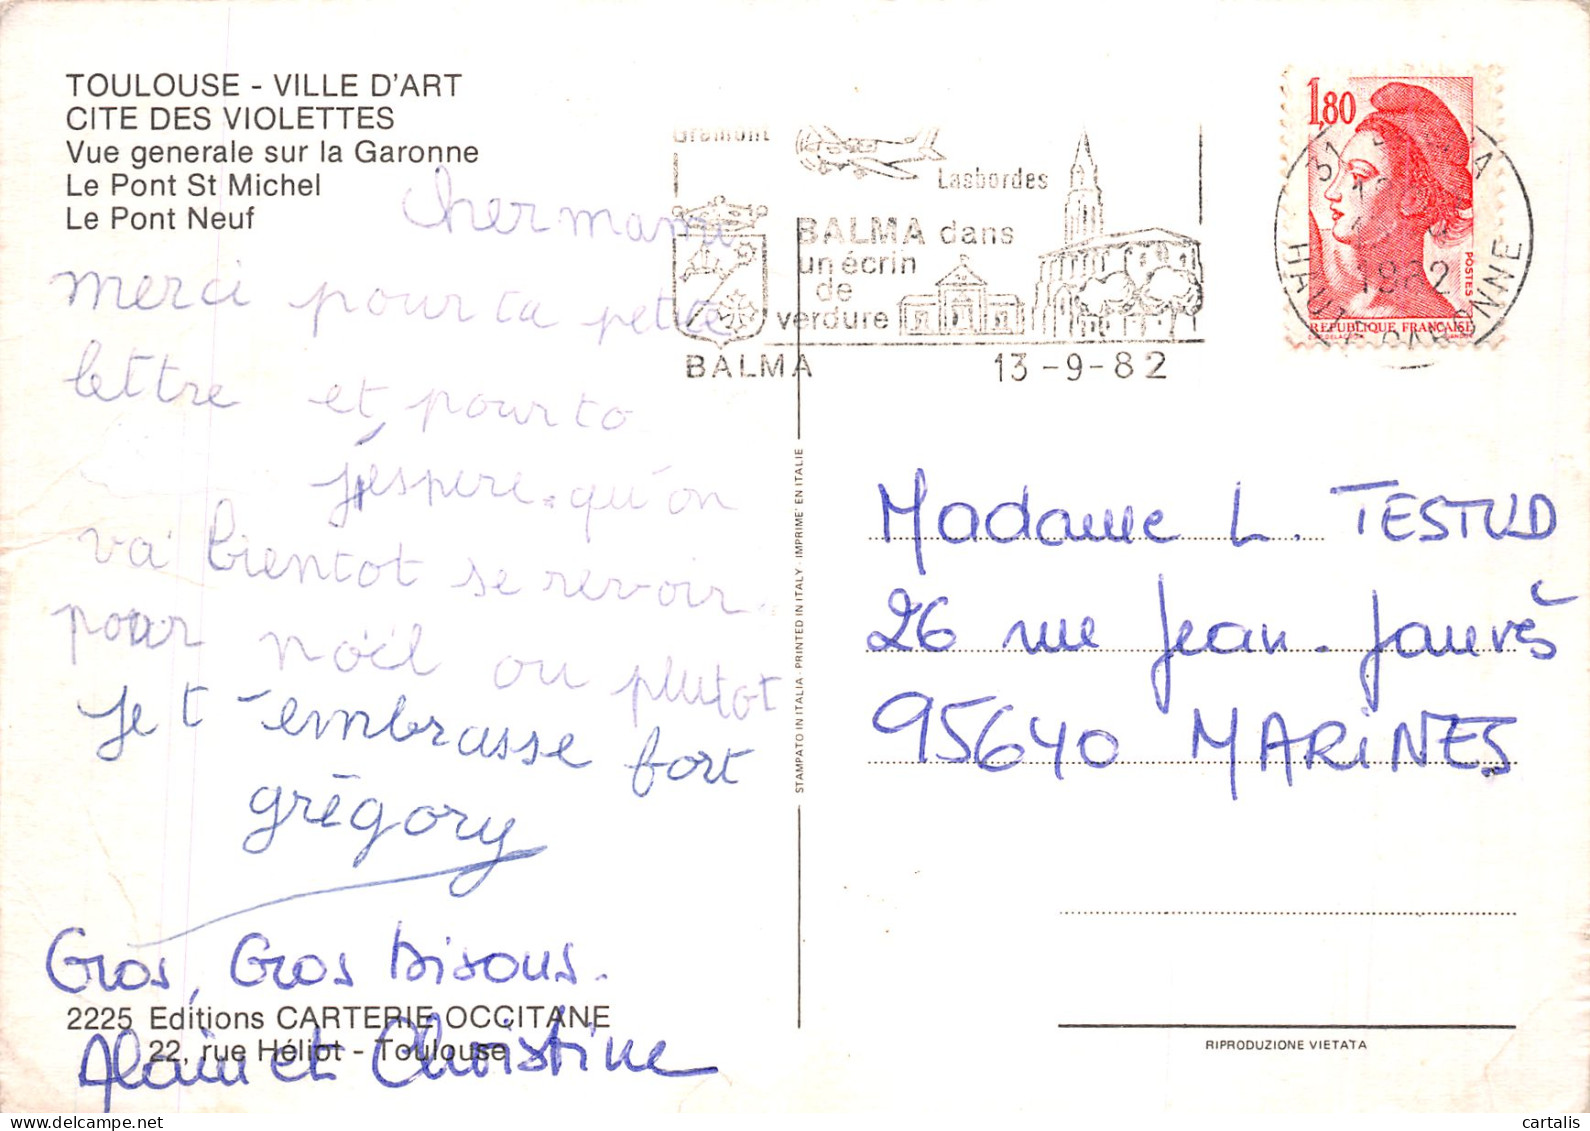 TOULOUSE - VILLE D'ART
CITE DES VIOLETTES
Vue generale sur la Garonne
Le Pont St Michel
Le Pont Neuf
cher mami
merci pour ta petite
lettre et pour to
j'espere qu'on
va bientot se revoir
pour noël ou plutot
je t'embrasse fort
grégory
Gros, Gros bisous.
Alain et Christine
2225 Editions CARTERIE OCCITANE
22, rue Héliot - Toulouse
STAMPATO IN ITALIA - PRINTED IN ITALY - IMPRIME' EN ITALIE
Gramont
Lasbordes
BALMA dans
un écrin
de
verdure
BALMA
13-9-82
1,80
POSTES
REPUBLIQUE FRANÇAISE
31
HAUTE GARONNE
Madame L. TESTUD
26 rue Jean-Jaurès
95640 MARINES
RIPRODUZIONE VIETATA
cartalis